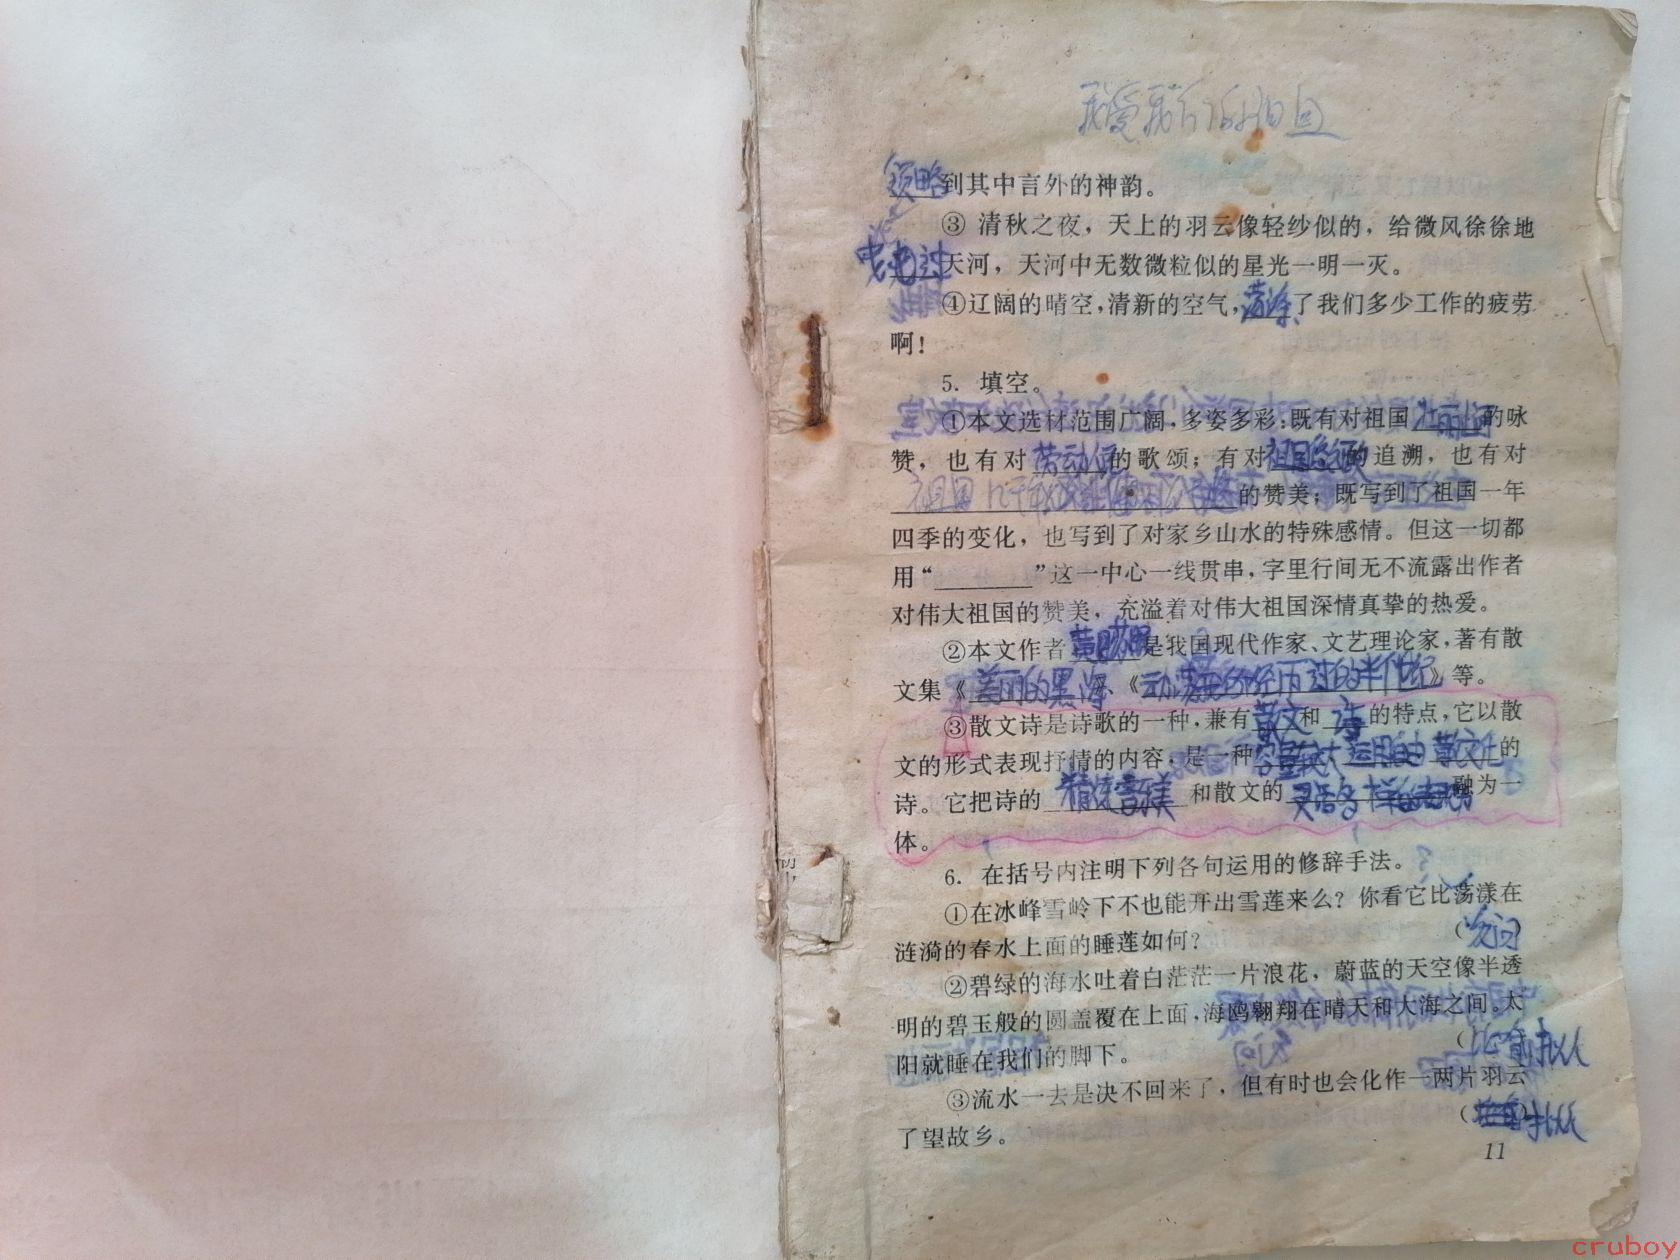 我爱我们的祖国
领略到其中言外的神韵。
③ 清秋之夜，天上的羽云像轻纱似的，给微风徐徐地
天河，天河中无数微粒似的星光一明一灭。
④辽阔的晴空，清新的空气，荡涤了我们多少工作的疲劳
啊！
5. 填空。
①本文选材范围广阔，多姿多彩：既有对祖国壮丽山河的咏
赞，也有对劳动人民的歌颂；有对祖国的追溯，也有对
祖国几千年的赞美；既写到了祖国一年
四季的变化，也写到了对家乡山水的特殊感情。但这一切都
用“______”这一中心一线贯串，字里行间无不流露出作者
对伟大祖国的赞美，充溢着对伟大祖国深情真挚的热爱。
②本文作者黄是我国现代作家、文艺理论家，著有散
文集《美丽的黑海》、《动荡的半世纪》等。
③散文诗是诗歌的一种，兼有散文和诗的特点，它以散
文的形式表现抒情的内容，是一种容量较大运用自由散文化的
诗。它把诗的精炼音乐美和散文的灵活多样的融为一
体。
6. 在括号内注明下列各句运用的修辞手法。
①在冰峰雪岭下不也能开出雪莲来么？你看它比荡漾在
涟漪的春水上面的睡莲如何？（反问）
②碧绿的海水吐着白茫茫一片浪花，蔚蓝的天空像半透
明的碧玉般的圆盖覆在上面，海鸥翱翔在晴天和大海之间。太
阳就睡在我们的脚下。（比喻 拟人
③流水一去是决不回来了，但有时也会化作一两片羽云
了望故乡。（拟人
11
cruboy